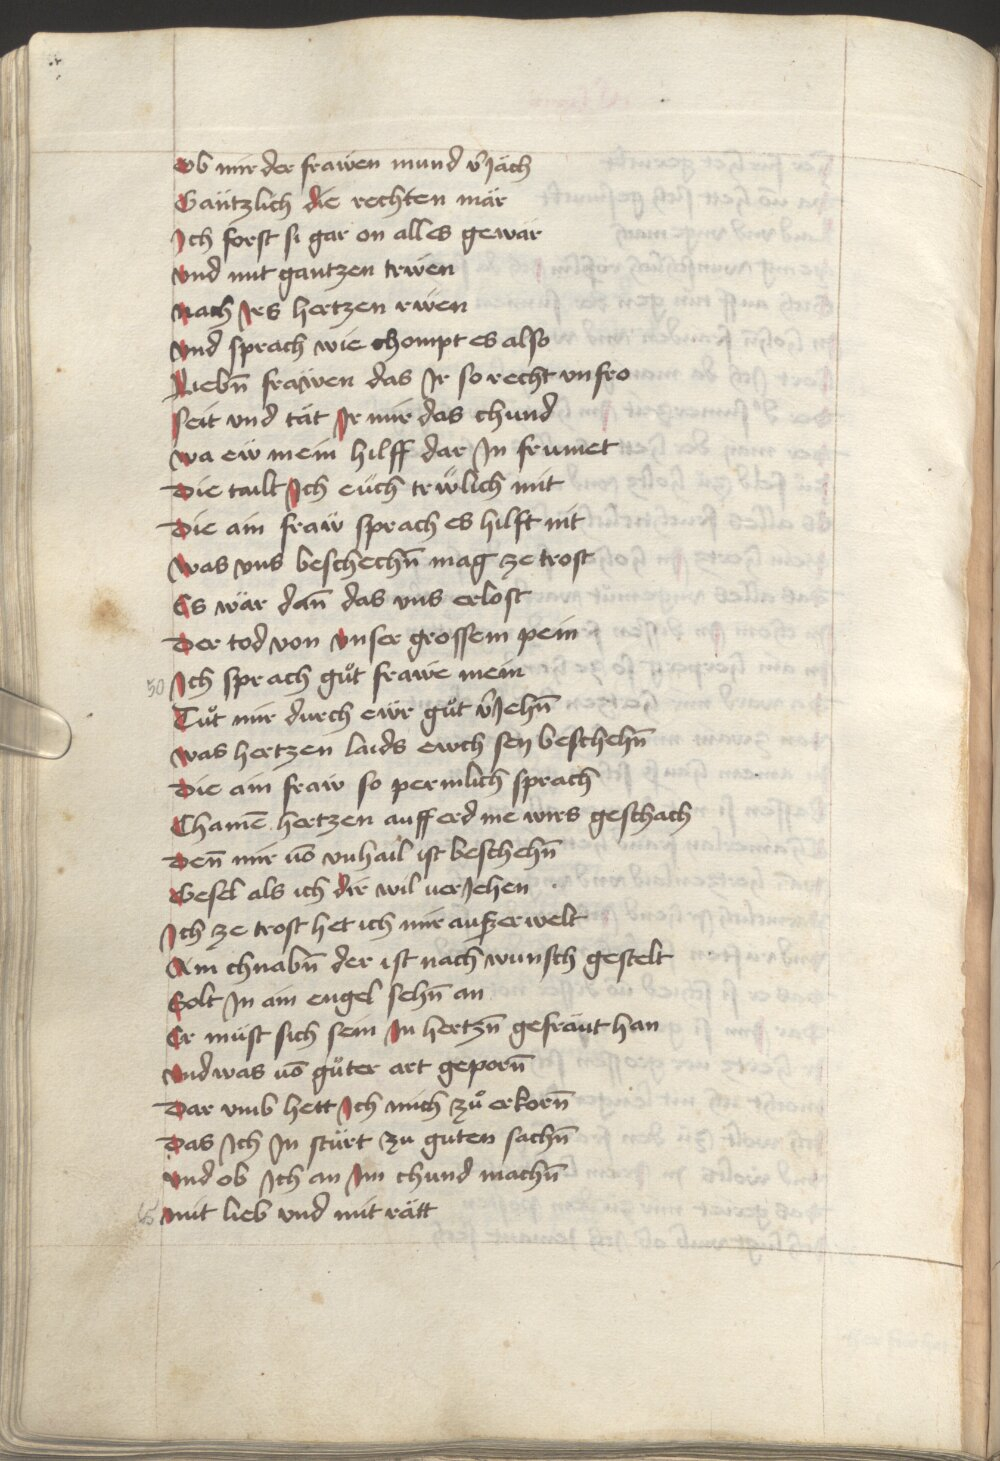 Ob mir der frawen mund v̄Jäch
Gäntzlich die rechten mär
Ich forst si gar on alles gewär
Vnd mit gantzen trẅen
Nach Irs hertzen rẅen
Vnd sprach wie chompt es also
Liebn̄ fraẅen das Ir so recht vnfro
Seit vnd tät Ir mir das chund
Wa eẅ mein hilff dar In frumet
Die tailt Ich eüch trẅlich mit
Die ain fraẅ sprach es hilft nit
Was vns beschechn̄ mag ze trost
Es wär dan̄ das vns erlost
Der tod von vnser grossem pein
50 Ich sprach gůt frawe mein
Tůt mir durch eẅr gůt v̄Jehn̄
Was hertzen laids ewch sey beschehn̄
Die ain fraw so permlich sprach
Chainē hertzen auff erd nie wirs geschach
Den̄ mir vō vnhail ist beschehn̄
Gesel als ich dir wil uerJehen
Ich ze trost het ich mir auszerwelt
Ain chnabn̄ der ist nach wunsch gestelt
Solt In ain engel sehn̄ an
Er müst sich sein In hertzn̄ gefräut han
Vnd was vō gůter art geporn̄
Dar vmb hett Ich mich zů erkorn̄
Das Ich In stürt zu guten sachn̄
Vnd ob Ich an Im chund machn̄
65 Mit lieb vnd mit rätt